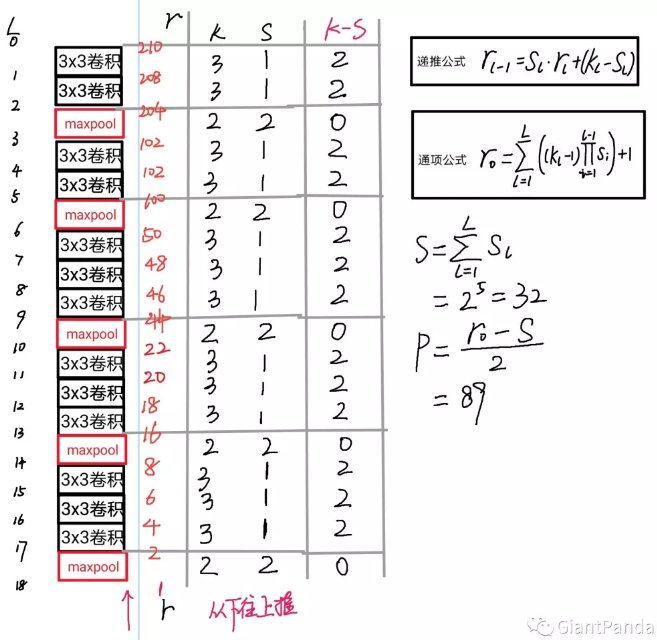 L r K S K-S
0 210
3x3卷积 3 1 2
1 208
3x3卷积 3 1 2
2 204
maxpool 2 2 0
3 102
3x3卷积 3 1 2
4 102
3x3卷积 3 1 2
5 100
maxpool 2 2 0
6 50
3x3卷积 3 1 2
7 48
3x3卷积 3 1 2
8 46
3x3卷积 3 1 2
9 44
maxpool 2 2 0
10 22
3x3卷积 3 1 2
11 20
3x3卷积 3 1 2
12 18
3x3卷积 3 1 2
13 16
maxpool 2 2 0
14 8
3x3卷积 3 1 2
15 6
3x3卷积 3 1 2
16 4
3x3卷积 3 1 2
17 2
maxpool 2 2 0
18 1
r 从下往上推
递推公式 r_{l-1}=S_l·r_l+(k_l-S_l)
通项公式 r_0=∑_{l=1}^{L}((k_l-1)∏_{i=1}^{l-1}S_i)+1
S=∑_{l=1}^{L}S_l
=2^5=32
P=(r_0-S)/2
=89
GiantPanda